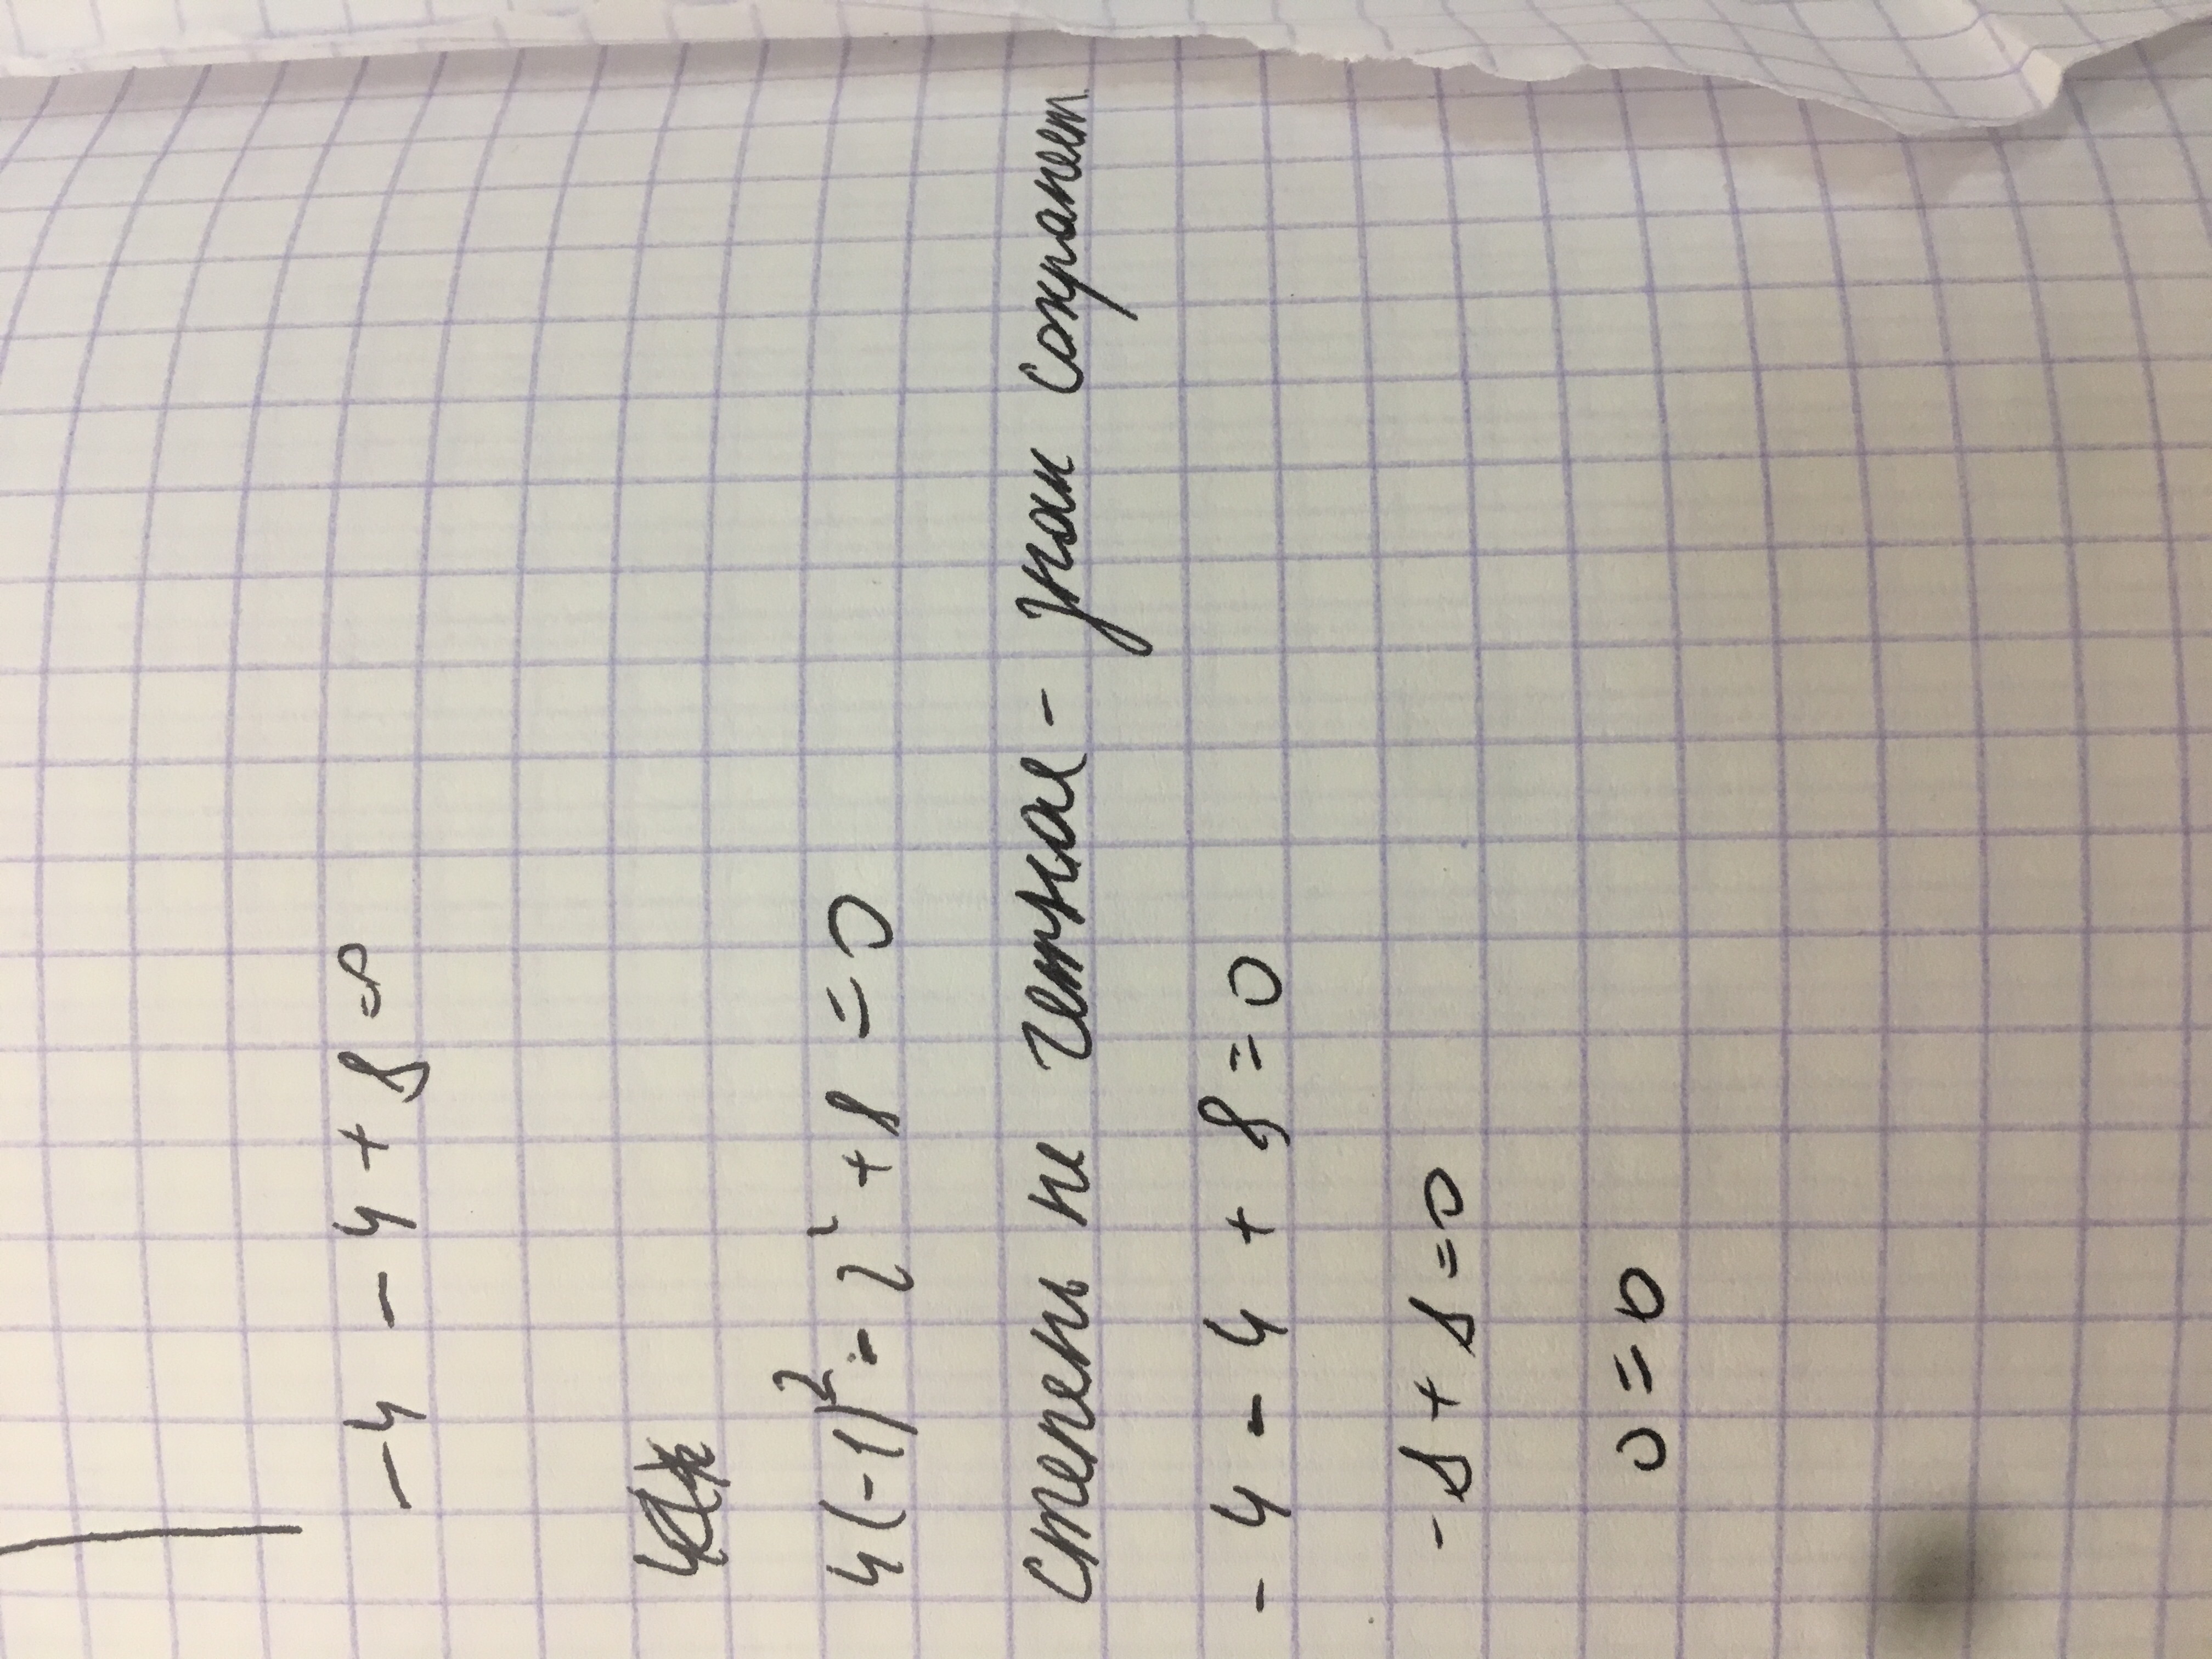 -4 - 4 + 8 = 0
4(-1)² - 2² + 8 = 0
степень не четная - знак сохраняет
- 4 - 4 + 8 = 0
- 8 + 8 = 0
0 = 0